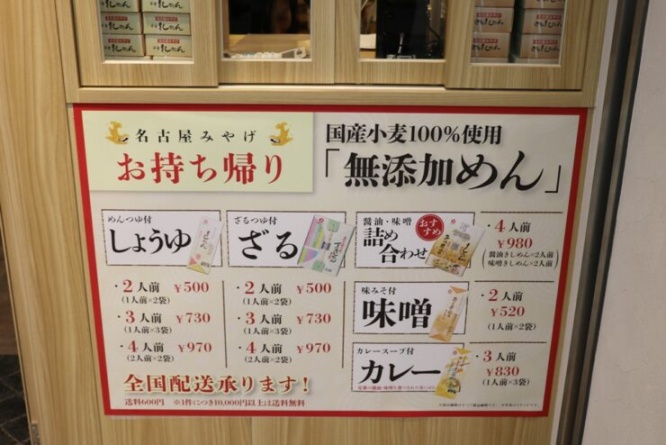 名古屋みやげ
お持ち帰り
国産小麦100%使用
「無添加めん」
めんつゆ付
しょうゆ
・2人前 ¥500
(1人前×2袋)
・3人前 ¥730
(1人前×3袋)
・4人前 ¥970
(2人前×2袋)
ざるつゆ付
ざる
・2人前 ¥500
(1人前×2袋)
・3人前 ¥730
(1人前×3袋)
・4人前 ¥970
(2人前×2袋)
醤油・味噌
詰め合わせ
おすすめ
・4人前
¥980
(醤油きしめん×2人前
味噌きしめん×2人前)
味みそ付
味噌
・2人前
¥520
(1人前×2袋)
カレースープ付
カレー
・3人前
¥830
(1人前×3袋)
全国配送承ります!
送料600円 ※1件につき10,000円以上は送料無料